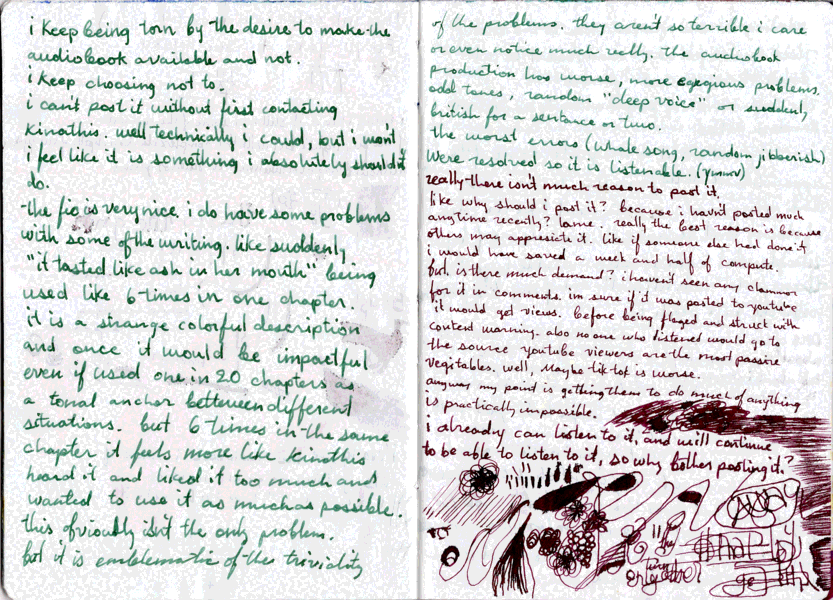 i keep being torn by the desire to make the
audiobook available and not.
i keep choosing not to.
i can't post it without first contacting
kinathis. well technically i could, but i won't
i feel like it is something i absolutely should'nt
do.
the fic is very nice. i do have some problems
with some of the writing. like suddenly
"it tasted like ash in her mouth" being
used like 6 times in one chapter.
it is a strange colorful description
and once it would be impactful
even if used one in 20 chapters as
a tonal anchor betteween different
situations. but 6 times in the same
chapter it feels more like kinathis
heard it and liked it too much and
wanted to use it as much as possible.
this obviously isn't the only problem.
but it is emblematic of the triviality
of the problems. they aren't so terrible i care
or even notice much really. the audiobook
production has worse, more egegious problems.
odd tones, random "deep voice" or sudden,
british for a sentence or two.
the worst errors (whale song, random jibberish)
were resolved so it is listenable.
really there isn't much reason to post it.
like why should i post it? because i havn't posted much
anytime recently? lame. really the best reason is because
others may appresiate it. like if someone else had done it
i would have saved a week and half of compute.
but is there much demand? i haven't seen any clammor
for it in comments. im sure if it was posted to youtube
it would get views. before being flaged and struck with
content warning. also no one who listened would go to
the source youtube viewers are the most passive
vegitables. well, maybe tiktok is worse.
anyway my point is getting them to do much of anything
is practically impossible.
i already can listen to it, and will continue
to be able to listen to it, so why bother posting it?